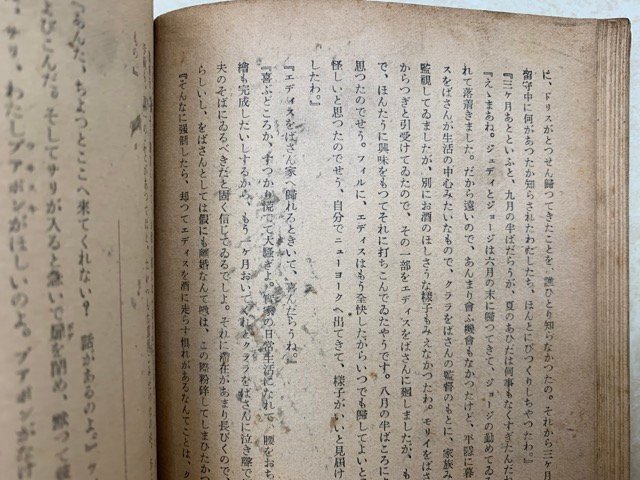 に、ドリスがとつぜん歸つてきたことを、誰ひとり知らなかつたの。それから三ヶ月
留守中に何があつたか知らされたわたしたち、ほんとにびつくりしちやつたわ。』
『三ヶ月あとといふと、九月の半ばだらうが、夏のあひだは何事もなくすぎたんだね
『えゝまあね。ジュディとジョージは六月の末に歸つてきて、ジョージの勤めてゐる
れて落着きました。だから遠いので、あんまり會ふ機會もなかつたけど、平穩に暮
スをばさんが生活の中心みたいなもので、クララをばさんの監督のもとに、家族み
監視してゐましたが、別にお酒のほしさうな樣子もみえなかつたわ。モリイをばさ
からつぎと引受けてゐたので、その一部をエディスをばさんに廻しましたが、も
で、ほんたうに興味をもつてそれに打ちこんでゐたやうです。八月の半ばごろに
思つたのでせう。フィルに、エディスはもう全快したからいつでも歸してよいと
怪しいと思つたのでせう、自分でニューヨークへ出てきて、樣子がいゝと見屆け
したわ。』
『エディスをばさん家へ歸れるときいて、喜んだらうね。』
『喜ぶどころか、すつかり慌てて大騷ぎよ。の日常生活になれて、腰をおち
繪も完成したいしするから、もう一ヶ月おいてくれとクララをばさんに泣き聲で
夫のそばにゐるべきだと固く信じてゐるでしよ。それに滯在があまり長びくので、
らしいし、をばさんとしては假にも離婚なんて噂は、この際粉碎してしまひたかつ
『そんなに強制したら、却つてエディスを酒に走らす惧れがあるなんてことは、ク
「あんた、ちょつとここへ來てくれない？　話があるのよ。」
よびこんだ。そしてサリが入ると急いで扉を閉め、默つて
サリ、わたしプアボンがほしいのよ。プアボンがなけ